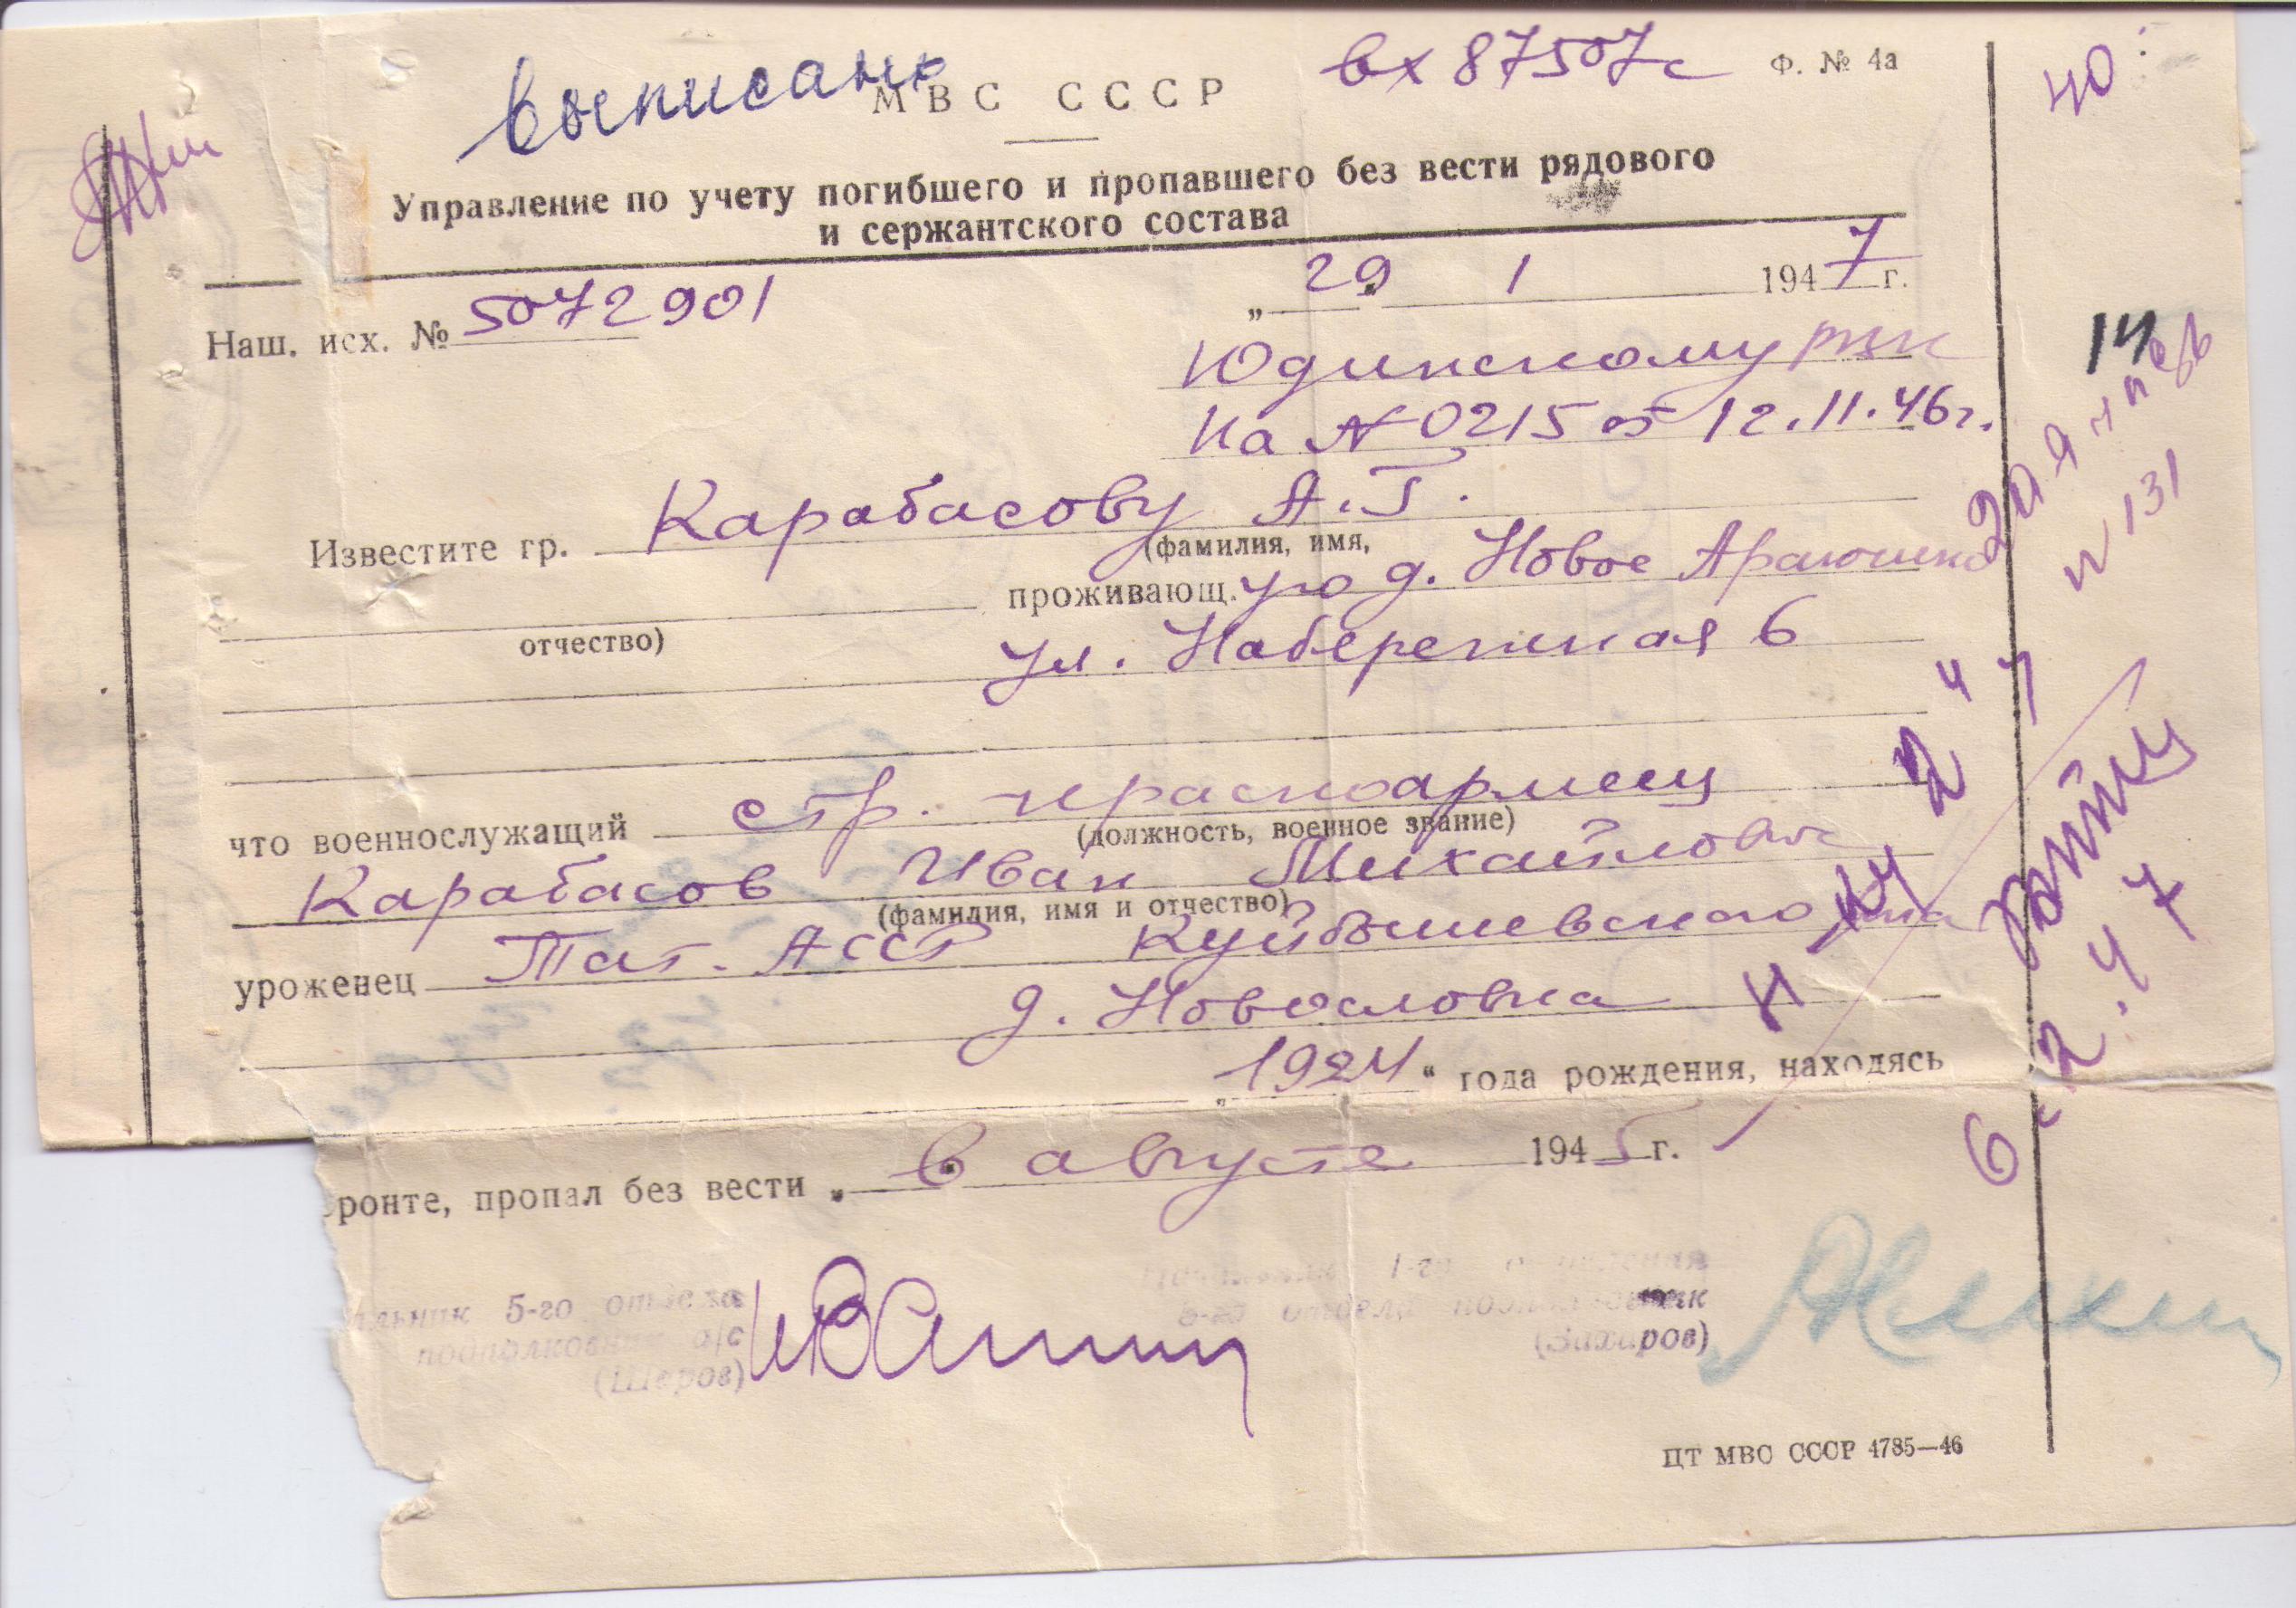 выписано
вх 87507с
Ф. № 4а
40
МВС СССР
Управление по учету погибшего и пропавшего без вести рядового
и сержантского состава
Наш. исх. № 5072901
„29" 1 1947 г.
Юдинскому РВК
На № 0215 от 12.11.46г.
14
№ 131
Известите гр. Карабасову А.Г.
(фамилия, имя,
отчество)
проживающ. ую д. Новое Аракчино
ул. Набережная 6
что военнослужащий стр. красноармеец
(должность, военное звание)
Карабасов Иван Михайлович
(фамилия, имя и отчество)
уроженец Тат. АССР Куйбышевского р-на
д. Новословка
„1924" года рождения, находясь
фронте, пропал без вести „ в августе 1945 г.
6.2.47
льник 5-го отдела
подполковник а/с
(Шеров)
1-го отделения
5-го отдела подполковник
(Захаров)
ЦТ МВС СССР 4785—46